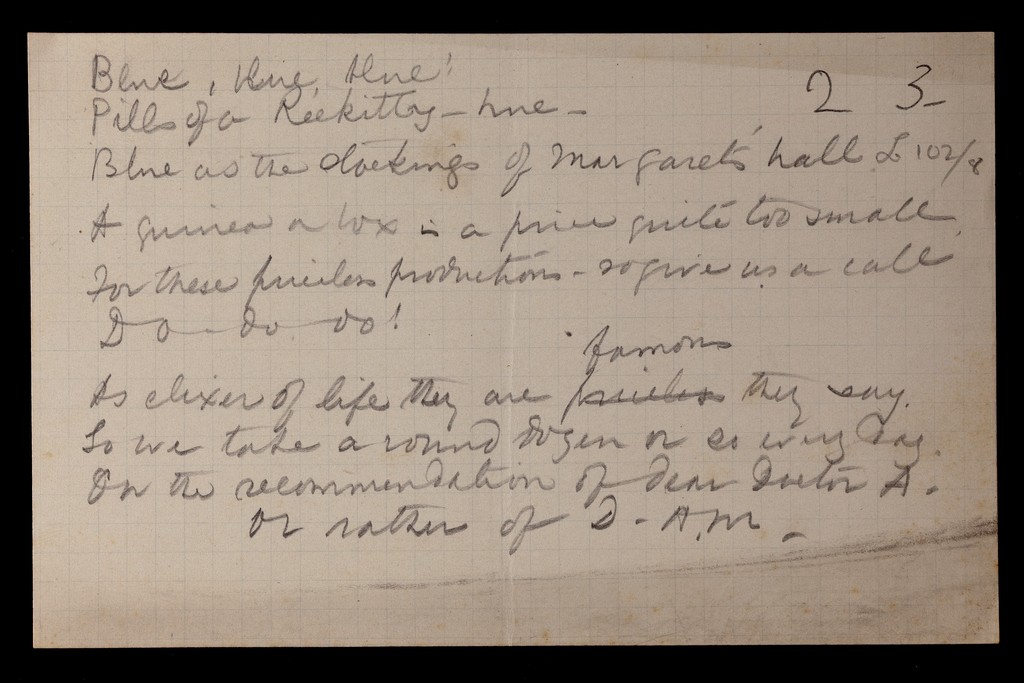 Blue, blue, blue!
2 3-
Pills of a Reckitty-hue-
Blue as the stockings of Margaret's hall £102/8
A guinea a box is a price quite too small
For these priceless productions - so give us a call
Do - do do!
As elixer of life they are priceless they say.
famous
So we take a round dozen or so every day.
On the recommendation of dear Doctor A.
Or rather of D. A, M.